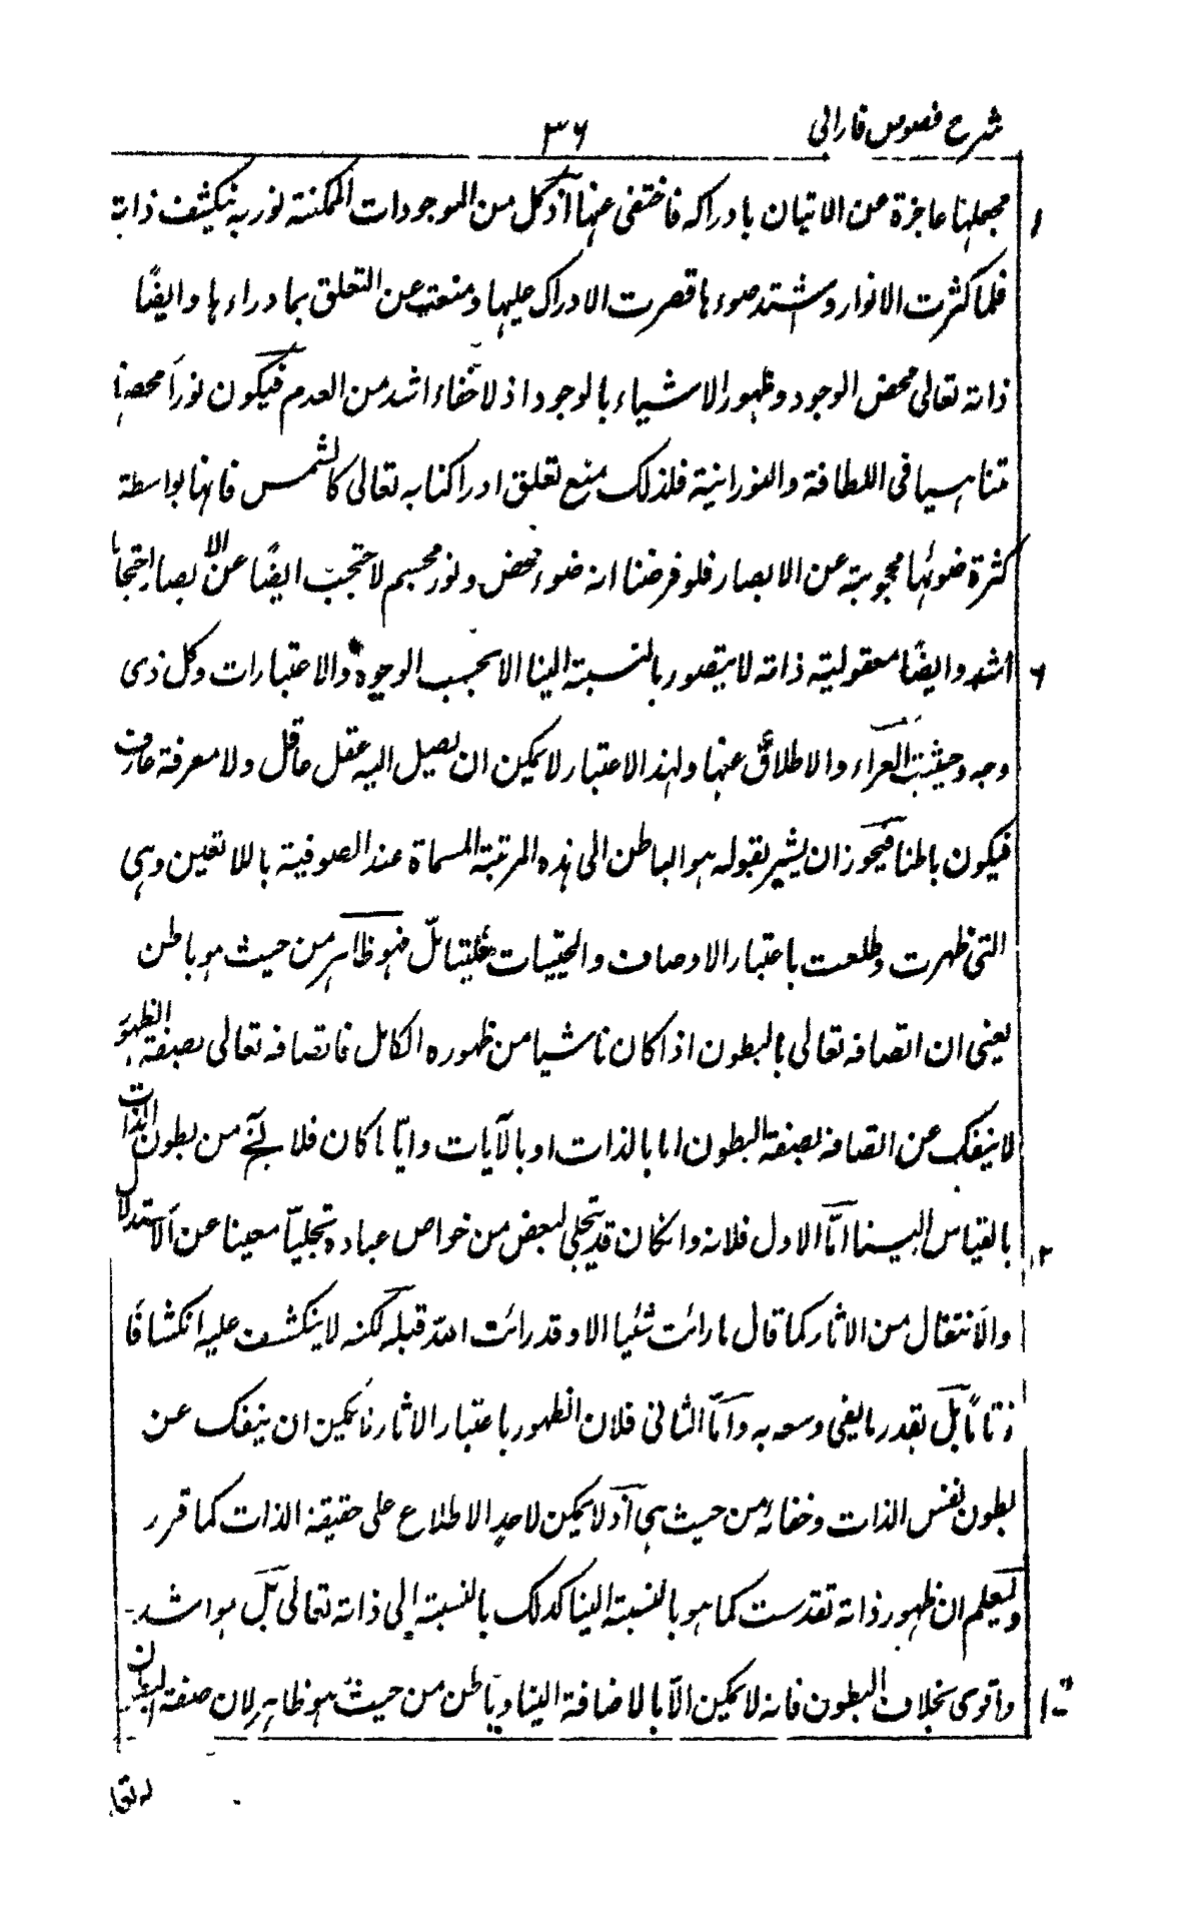 شرح فصوص فارابی
٣٦
فجعلها عاجزة عن الاتيان بادراكه فاختفى عنها اذ كل من الموجودات الممكنة نور به ينكشف ذاته
فلما كثرت الانوار وشتد ضوءها قصرت الادراك عليها ومنعت عن التعلق بما وراءها وايضًا
ذاته تعالى محض الوجود وظهور الاشياء بالوجود اذ لا خفاء اشد من العدم فيكون نورا محضا
متناهيا فى اللطافة والنورانية فلذلك منع تعلق ادراكنا به تعالى كالشمس فانها بواسطة
كثرة ضوئها محجوبة عن الابصار فلو فرضنا انه ضوء محض ونور مجسم لاحتجب ايضًا عن الابصار احتجابا
اشد وايضًا معقولية ذاته لا يتصور بالنسبة الينا الا بحسب الوجوه والاعتبارات وكل ذى
وجه وحيثية العراء والاطلاق عنها ولهذا الاعتبار لا يمكن ان يصل اليه عقل عاقل ولا معرفة عارف
فيكون باطنا فيجوز ان يشير بقوله هو الباطن الى هذه المرتبة المسماة عند الصوفية باللاتعين وهى
التى ظهرت وطلعت باعتبار الاوصاف والحيثيات فليتأمل فهو ظاهر من حيث هو باطن
يعنى ان اتصافه تعالى بالبطون اذا كان ناشيا من ظهوره الكامل فاتصافه تعالى بصفة الظهور
لا ينفك عن اتصافه بصفة البطون اما بالذات او بالآيات وايّا ما كان فلا يخ من بطون الذات
بالقياس الينا امّا الاول فلانه وان كان قد يتجلى لبعض من خواص عباده تجليّا معينا عن الاستدلال
والانتقال من الاثار كما قال ما رائت شئيا الا وقد رائت الله قبله لكنه لا ينكشف عليه انكشافًا
تامًا بل بقدر ما يفى وسعه به وامّا الثانى فلان الظهور باعتبار الاثار ما يمكن ان ينفك عن
بطون نفس الذات وخفائه من حيث هى اذ لا يمكن لاحد الاطلاع على حقيقة الذات كما قرر
وليعلم ان ظهور ذاته تقدست كما هو بالنسبة الينا كذلك بالنسبة إلى ذاته تعالى بل هو اشد
واقوى بخلاف البطون فانه لا يمكن الّا بالاضافة الينا وباطن من حيث هو ظاهر لان صفة البطون
له تعا